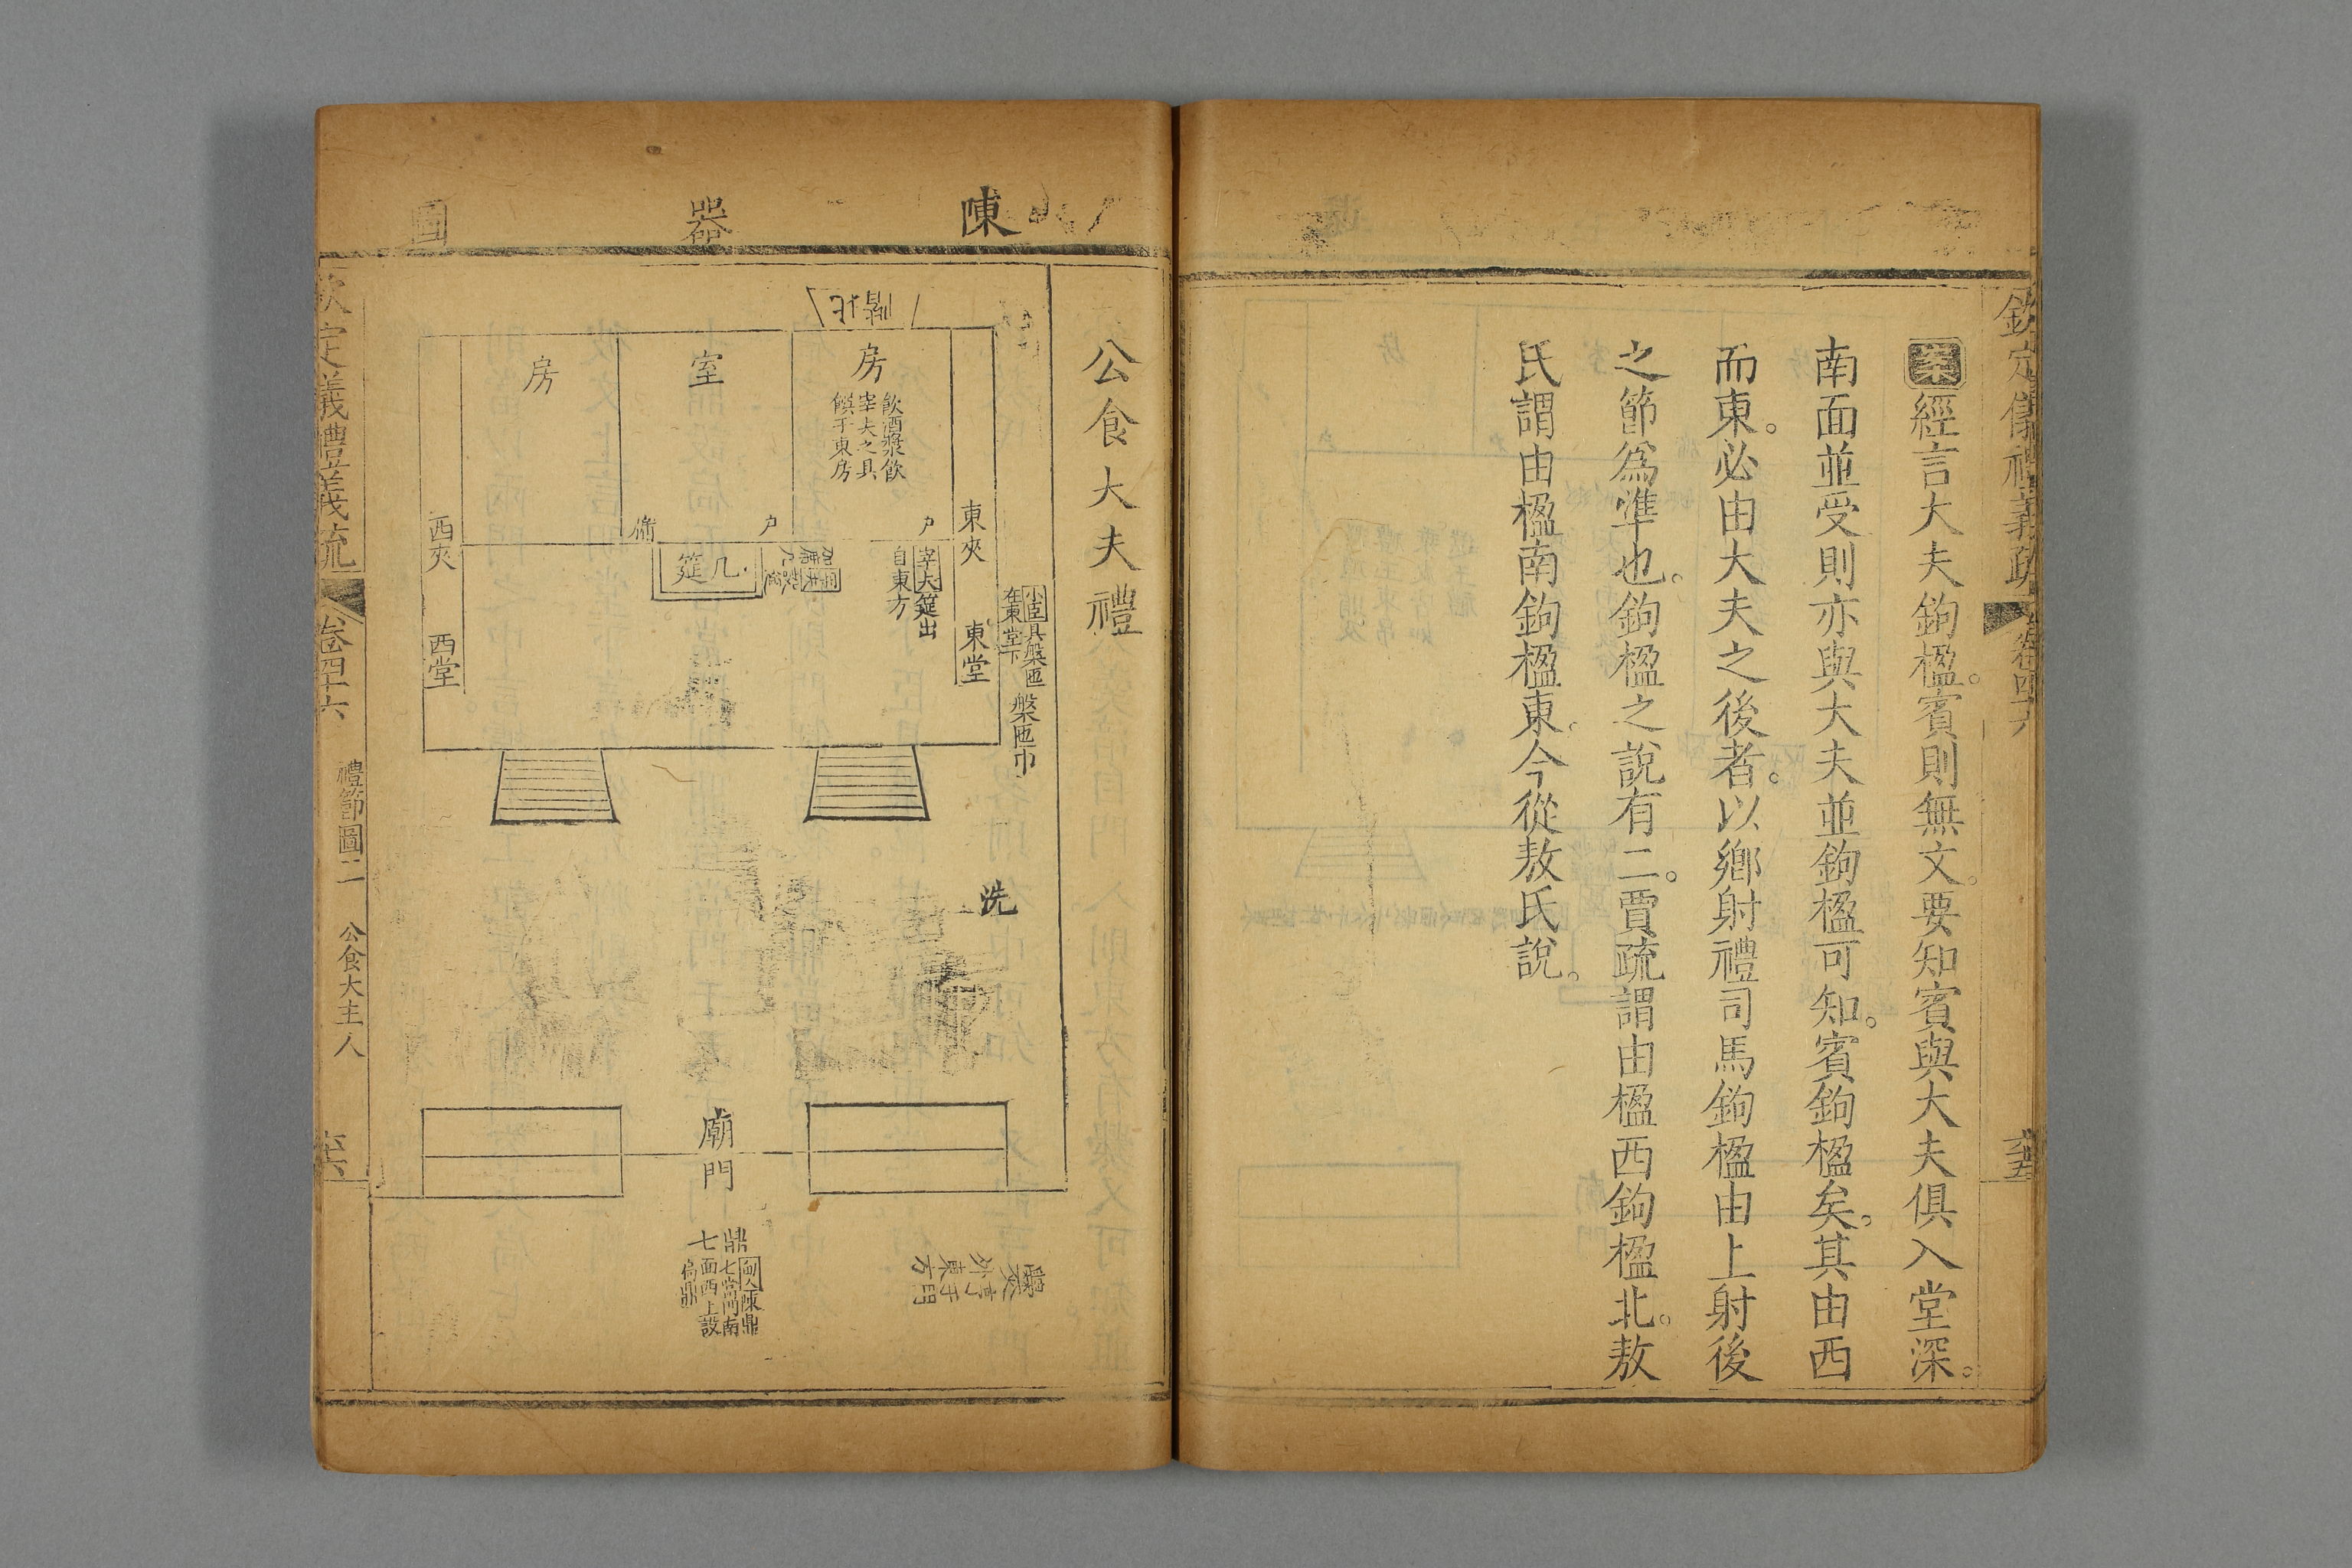 欽定儀禮義疏
卷四十六
案經言大夫鉤楹。賓則無文。要知賓與大夫俱入堂深。
南面並受則亦與大夫並鉤楹可知。賓鉤楹矣。其由西
而東。必由大夫之後者。以鄉射禮司馬鉤楹由上射後
之節爲準也。鉤楹之說有二。賈疏謂由楹西鉤楹北。敖
氏謂由楹南鉤楹東。今從敖氏說。
陳器圖
公食大夫禮
房
飲酒漿飲
宰夫之具
饌于東房
室
房
戶
戶
牖
東夾
東堂
西夾
西堂
宰夫筵出
自東方
几筵
小臣具槃匜
在東堂下
槃匜巾
洗
廟門
鼎七
甸人陳鼎
七當門南
面西上設
扃鼏
欽定儀禮義疏
卷四十六
禮節圖二
公食大主人